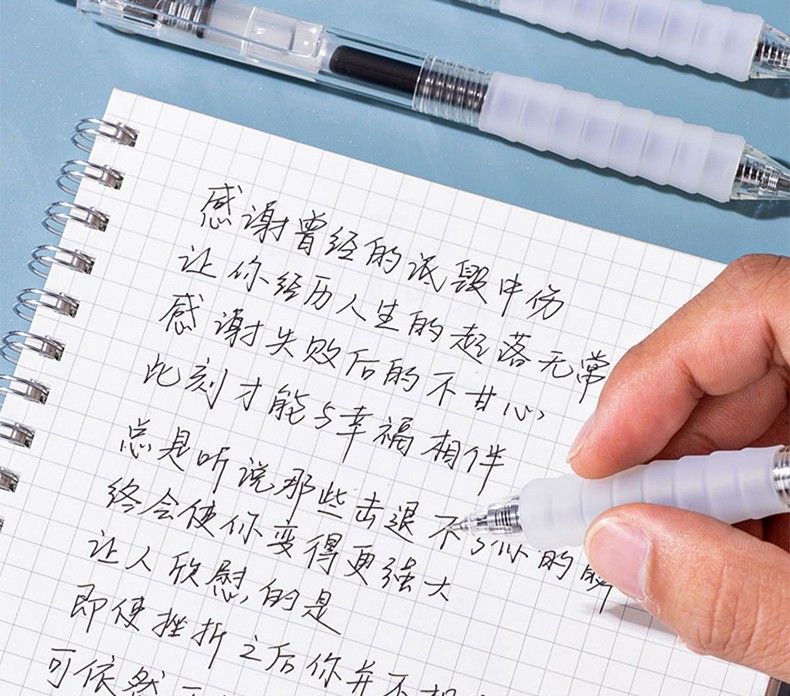 感谢曾经的诋毁中伤
让你经历人生的起落无常
感谢失败后的不甘心
此刻才能与幸福相伴
总是听说那些击退不了你的瞬
终会使你变得更强大
让人欣慰的是
即使挫折之后你并不
可依然